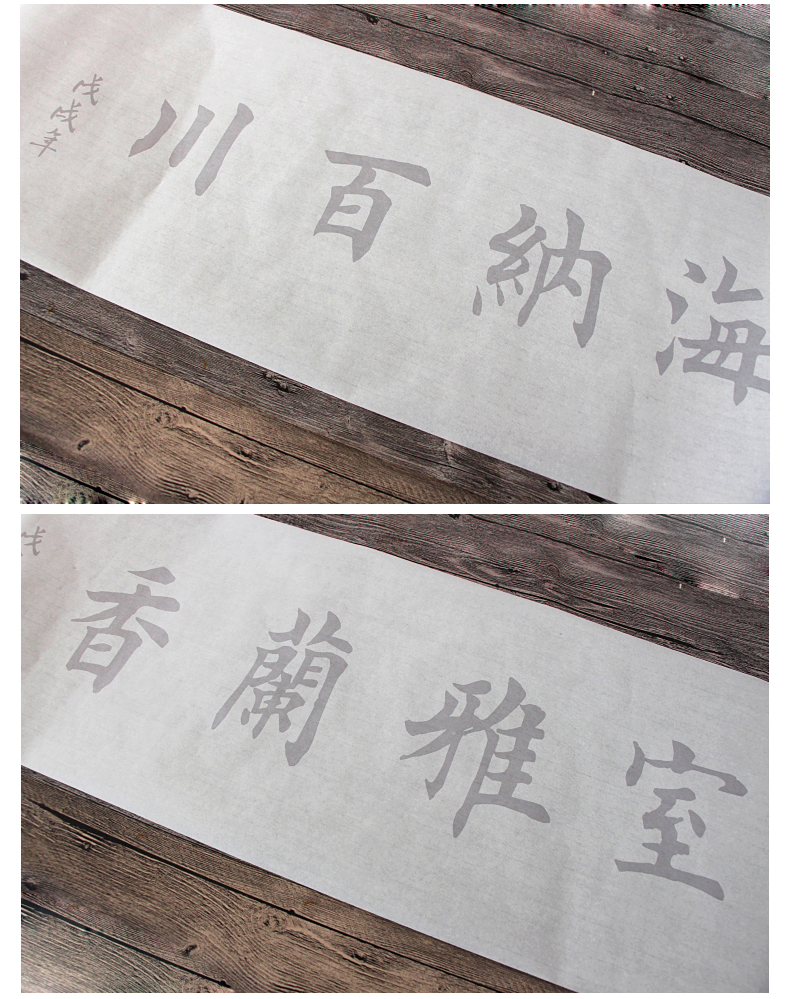 海納百川
戊戌年
室雅蘭香
戊